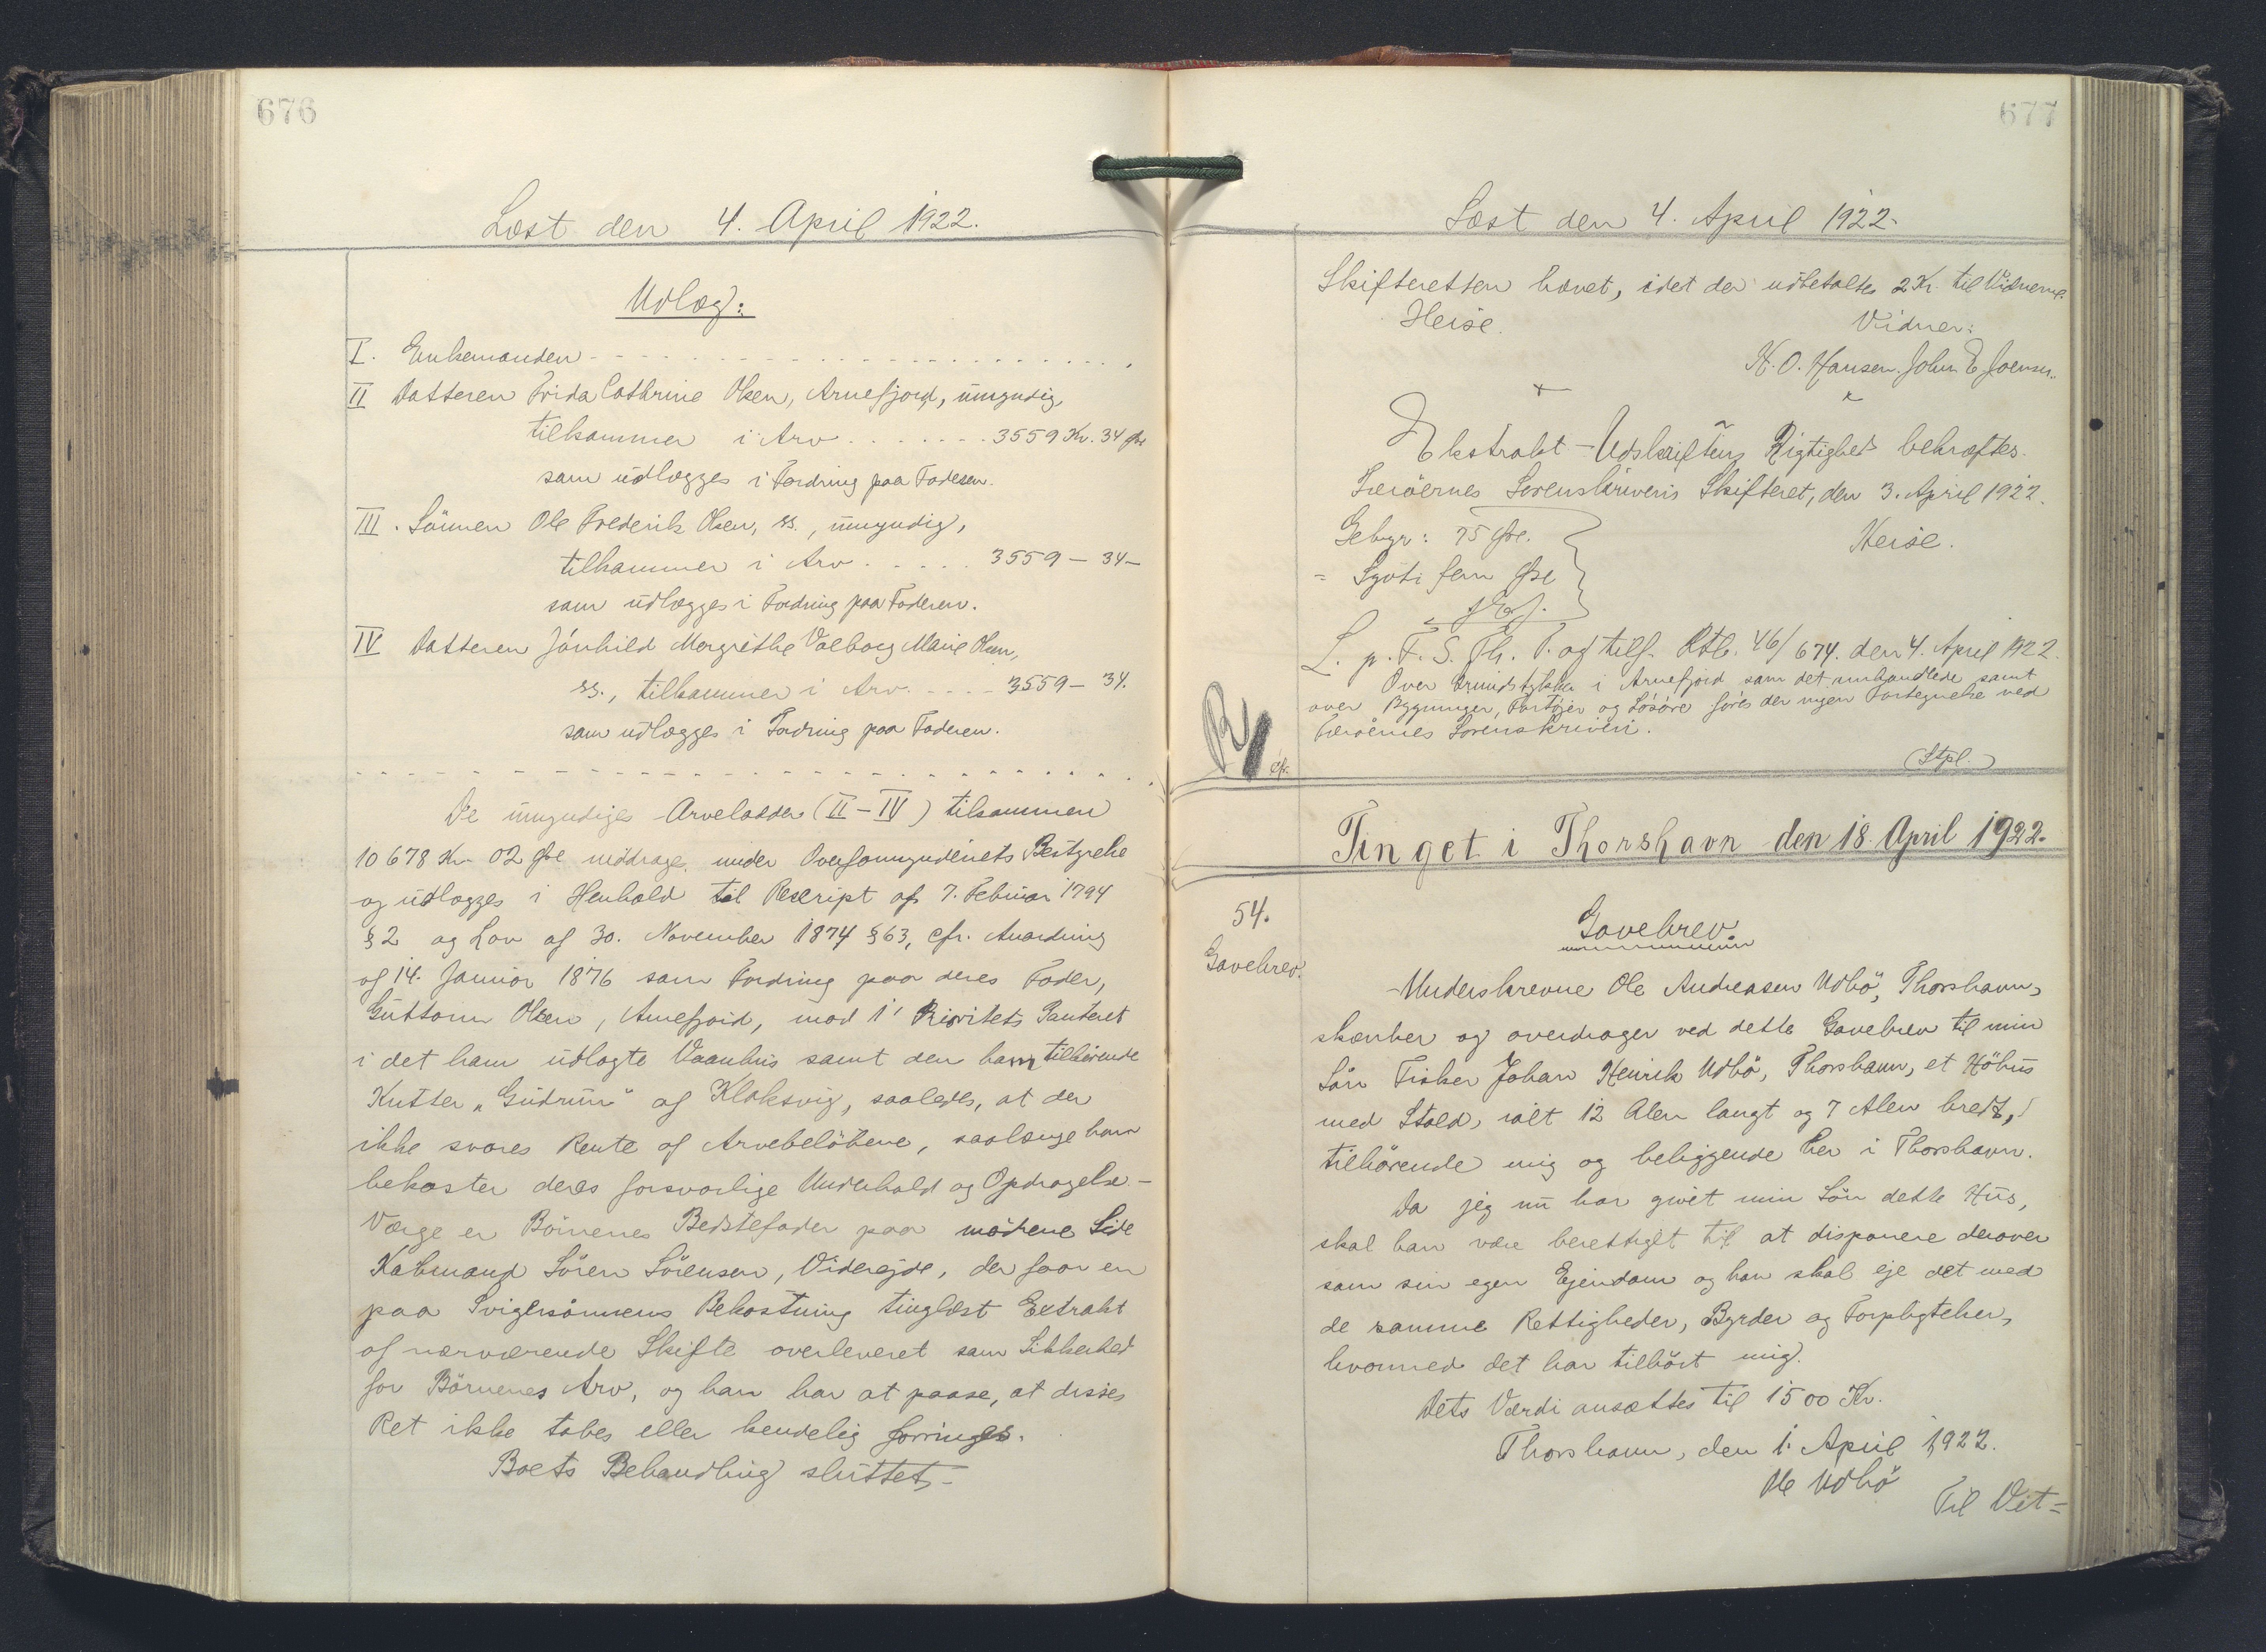 676
Læst den 4. April 1922.
Udlæg:
I. Enkemanden
II Datteren Frida Cathrine Olsen, Arnefjord, umyndig,
tilkommer i Arv . . . . . . . 3559 Kr. 34 Øre
som udlægges i Fordring paa Faderen.
III. Sönnen Ole Frederik Olsen, ss., umyndig,
tilkommer i Arv . . . . . 3559 - 34 -
som udlægges i Fordring paa Faderen.
IV Datteren Jónhild Margrethe Valborg Marie Olsen,
ss., tilkommer i Arv. - - - - 3559 - 34.
som udlægges i Fordring paa Faderen.
De umyndiges Arvelodder (II - IV) tilsammen
10 678 Kr. 02 Øre unddrages under Overformynderiets Bestyrelse
og udlægges i Henhold til Rescript af 7. Februar 1794
§ 2 og Lov af 30. November 1874 § 63, cfr. Anordning
af 14. Januar 1876 som Fordring paa deres Fader,
Guttorm Olsen, Arnefjord, mod 1' Prioritets Panteret
i det ham udlagte Vaanhus samt den ham tilhörende
Kutter "Gudrun" af Klaksvig, saaledes, at der
ikke svares Rente af Arvebelöbene, saalænge han
bekoster deres forsvarlige Underhold og Opdragelse. -
Værge er Börnenes Bedstefader paa mödrene Side
Købmand Sören Sörensen, Viderejde, der faar en
paa Svigersönnens Bekostning tinglæst Extrakt
af nærværende Skifte overleveret som Sikkerhed
for Börnenes Arv, og han har at paase, at disses
Ret ikke tabes eller kendelig forringes.
Boets Behandling sluttet. -
677
Læst den 4. April 1922.
Skifteretten hævet, idet der udbetaltes 2 Kr. til Vidnerne.
Heise. Vidner:
H. O. Hansen. John E Joensen.
Ekstrakt-Udskriftens Rigtighed bekræftes.
Færöernes Sorenskriveris Skifteret, den 3. April 1922.
Gebyr: 75 Øre. Heise.
= Syvti fem Øre
L. p. F. S. Th. P. og tilf. Rtb. 46/674. den 4. April 1922.
Over Grundstykker i Arnefjord som det omhandlede samt
over Bygninger, Fartöjer og Lösöre föres der ingen Fortegnelse ved
Færöernes Sorenskriveri.
(Stpl.)
cfr.
Tinget i Thorshavn den 18. April 1922.
54.
Gavebrev.
Gavebrev.
Underskrevne Ole Andreasen Udbö, Thorshavn,
skænker og overdrager ved dette Gavebrev til min
Sön Fisker Johan Henrik Udbö, Thorshavn, et Höhus
med Stald, ialt 12 Alen langt og 7 Alen bredt,
tilhörende mig og beliggende her i Thorshavn.
Da jeg nu har givet min Sön dette Hus,
skal han være berettiget til at disponere derover
som sin egen Ejendom og han skal eje det med
de samme Rettigheder, Byrder og Forpligtelser,
hvormed det har tilhört mig.
Dets Værdi ansættes til 1500 Kr.
Thorshavn, den 1. April 1922.
Ole Udbö
Til Vit=